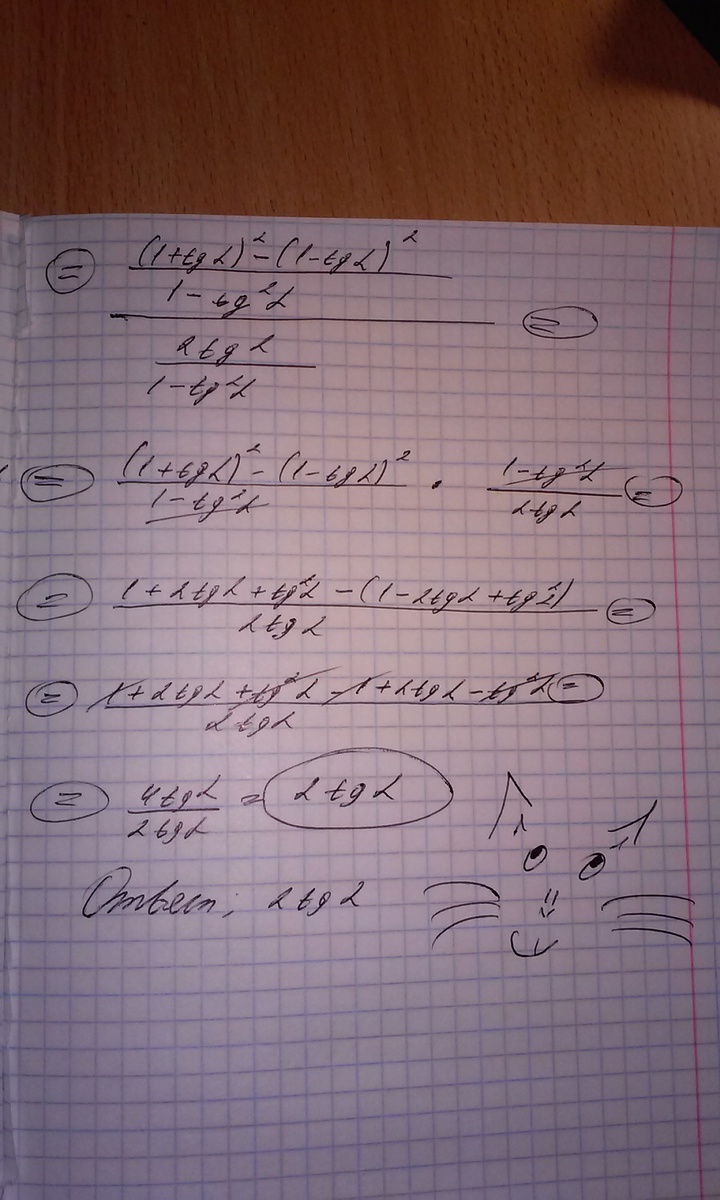 = (1+tgα)² - (1-tgα)²
1 - tg²α
=
2tgα
1-tg²α
= (1+tgα)² - (1-tgα)² · 1-tg²α =
1-tg²α 2tgα
= 1+2tgα+tg²α - (1-2tgα+tg²α) =
2tgα
= 1+2tgα+tg²α-1+2tgα-tg²α =
2tgα
= 4tgα = 2tgα
2tgα
Ответ: 2tgα